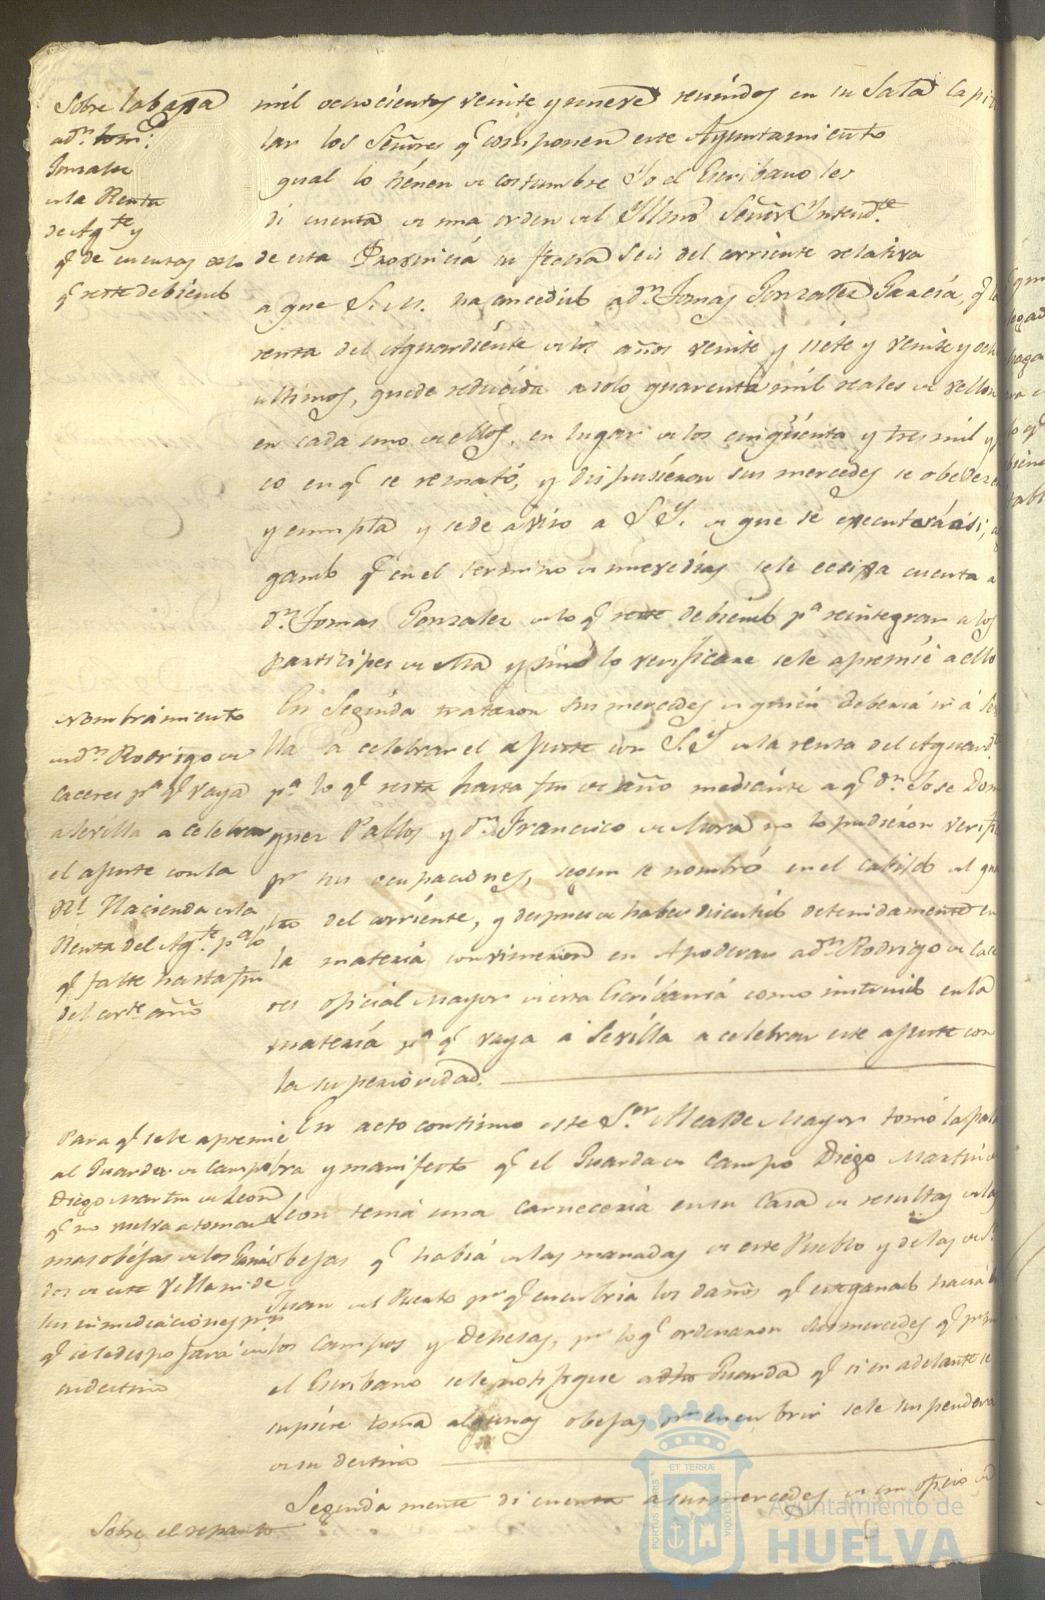 Sobre la baxa
a Dn. Tom.s
Gonzalez
en la Renta
de Agte. y
q. de cuentas de lo
q. reste debiendo
mil ochocientos veinte y nueve reunidos en su Sala Capitu
lar los Señores q. componen este Ayuntamiento
qual lo tienen de costumbre Yo el Escribano les
di cuenta de una orden del Yllmo. Señor Yntendte.
de esta Provincia su fecha seis del corriente relativa
a que S.M. ha concedido a Dn. Tomas Gonzalez Garcia, q. la
renta del Aguardiente de los años veinte y siete y veinte y ocho
ultimos, quede reducida a solo quarenta mil reales de vellon
en cada uno de ellos, en lugar de los cinqüenta y tres mil y
co en q. se remató, y dispusieron sus mercedes se obedezca
y cumpla y se de aviso a S.Sa. de que se executará asi,
gando q. en el termino de nueve dias se le exsija cuenta a
Dn. Tomas Gonzalez de lo q. reste debiendo pa. reintegrar a los
participes de ella y sino lo verificare se le apremie a ello
Nombramiento
en Dn. Rodrigo de
Caceres pa. q. vaya
a Sevilla a celebrar
el ajuste con la
Rl. Hacienda de la
Renta del Agte. pa. lo
q. falte hasta fin
del corte. año
En Seguida trataron sus mercedes de quien deberia ir á Sevi
lla a celebrar el ajuste con S.Sa. de la renta del Aguardte.
pa. lo q. resta hasta fin de año mediante a q. Dn. Jose Domin
guez Pallos y Dn. Francisco de Mora no lo pudieron verifi
pr. sus ocupaciones, segun se nombró en el cabildo del qua
tro del corriente, y despues de haber discutido detenidamente en
la materia convinieron en Apoderar a Dn. Rodrigo de Cace
res oficial Mayor de esta Escribania como instruido en la
materia pa. q. vaya á Sevilla a celebrar este ajuste con
la superioridad.
Para q. se le apremie
al Guarda de Campo
Diego Martin de Leon
q. no vuelva a tomar
mas obejas de los Ganados
de esta Villa ni de
sus inmediaciones pr.
q. se le despojará de
su destino
En acto continuo este Sor. Alcalde Mayor tomó la pala
bra y manifestó q. el Guarda de Campo Diego Martin de
Leon tenia una carneceria en su Casa de resultas de las
obejas q. habia de las manadas de este Pueblo y de las de Sn.
Juan del Puerto pr. q. encubria los daños q. el ganado hacia en
los campos y Dehesas, pr. lo q. ordenaron sus mercedes q. pr. mi
el Escribano se le notifique a dho Guarda q. si en adelante se
supiere toma algunas obejas pr. encubrir se le suspenderá
de su destino
Sobre el reparto
Segundamente di cuenta a sus mercedes de un oficio del
PORTUS MARIS ET TERRAE CUSTODIA
Ayuntamiento de
HUELVA